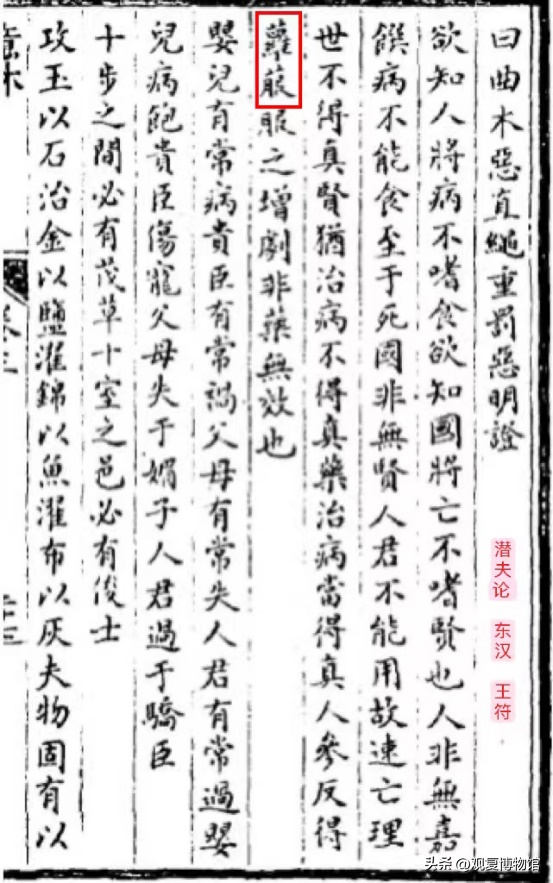 曰曲木惡直繩重罰惡明證
欲知人將病不嗜食欲知國將亡不嗜賢也人非無嘉
饌病不能食至于死國非無賢人君不能用故速亡理
世不得真賢猶治病不得真藥治病當得真人參反得
蘿菔服之增劇非藥無效也
嬰兒有常病貴臣有常禍父母有常失人君有常過嬰
兒病飽貴臣傷寵父母失于媚子人君過于驕臣
十步之間必有茂草十室之邑必有俊士
攻玉以石治金以鹽濯錦以魚濯布以灰夫物固有以
潜夫论 东汉 王符
头条 @观复博物馆